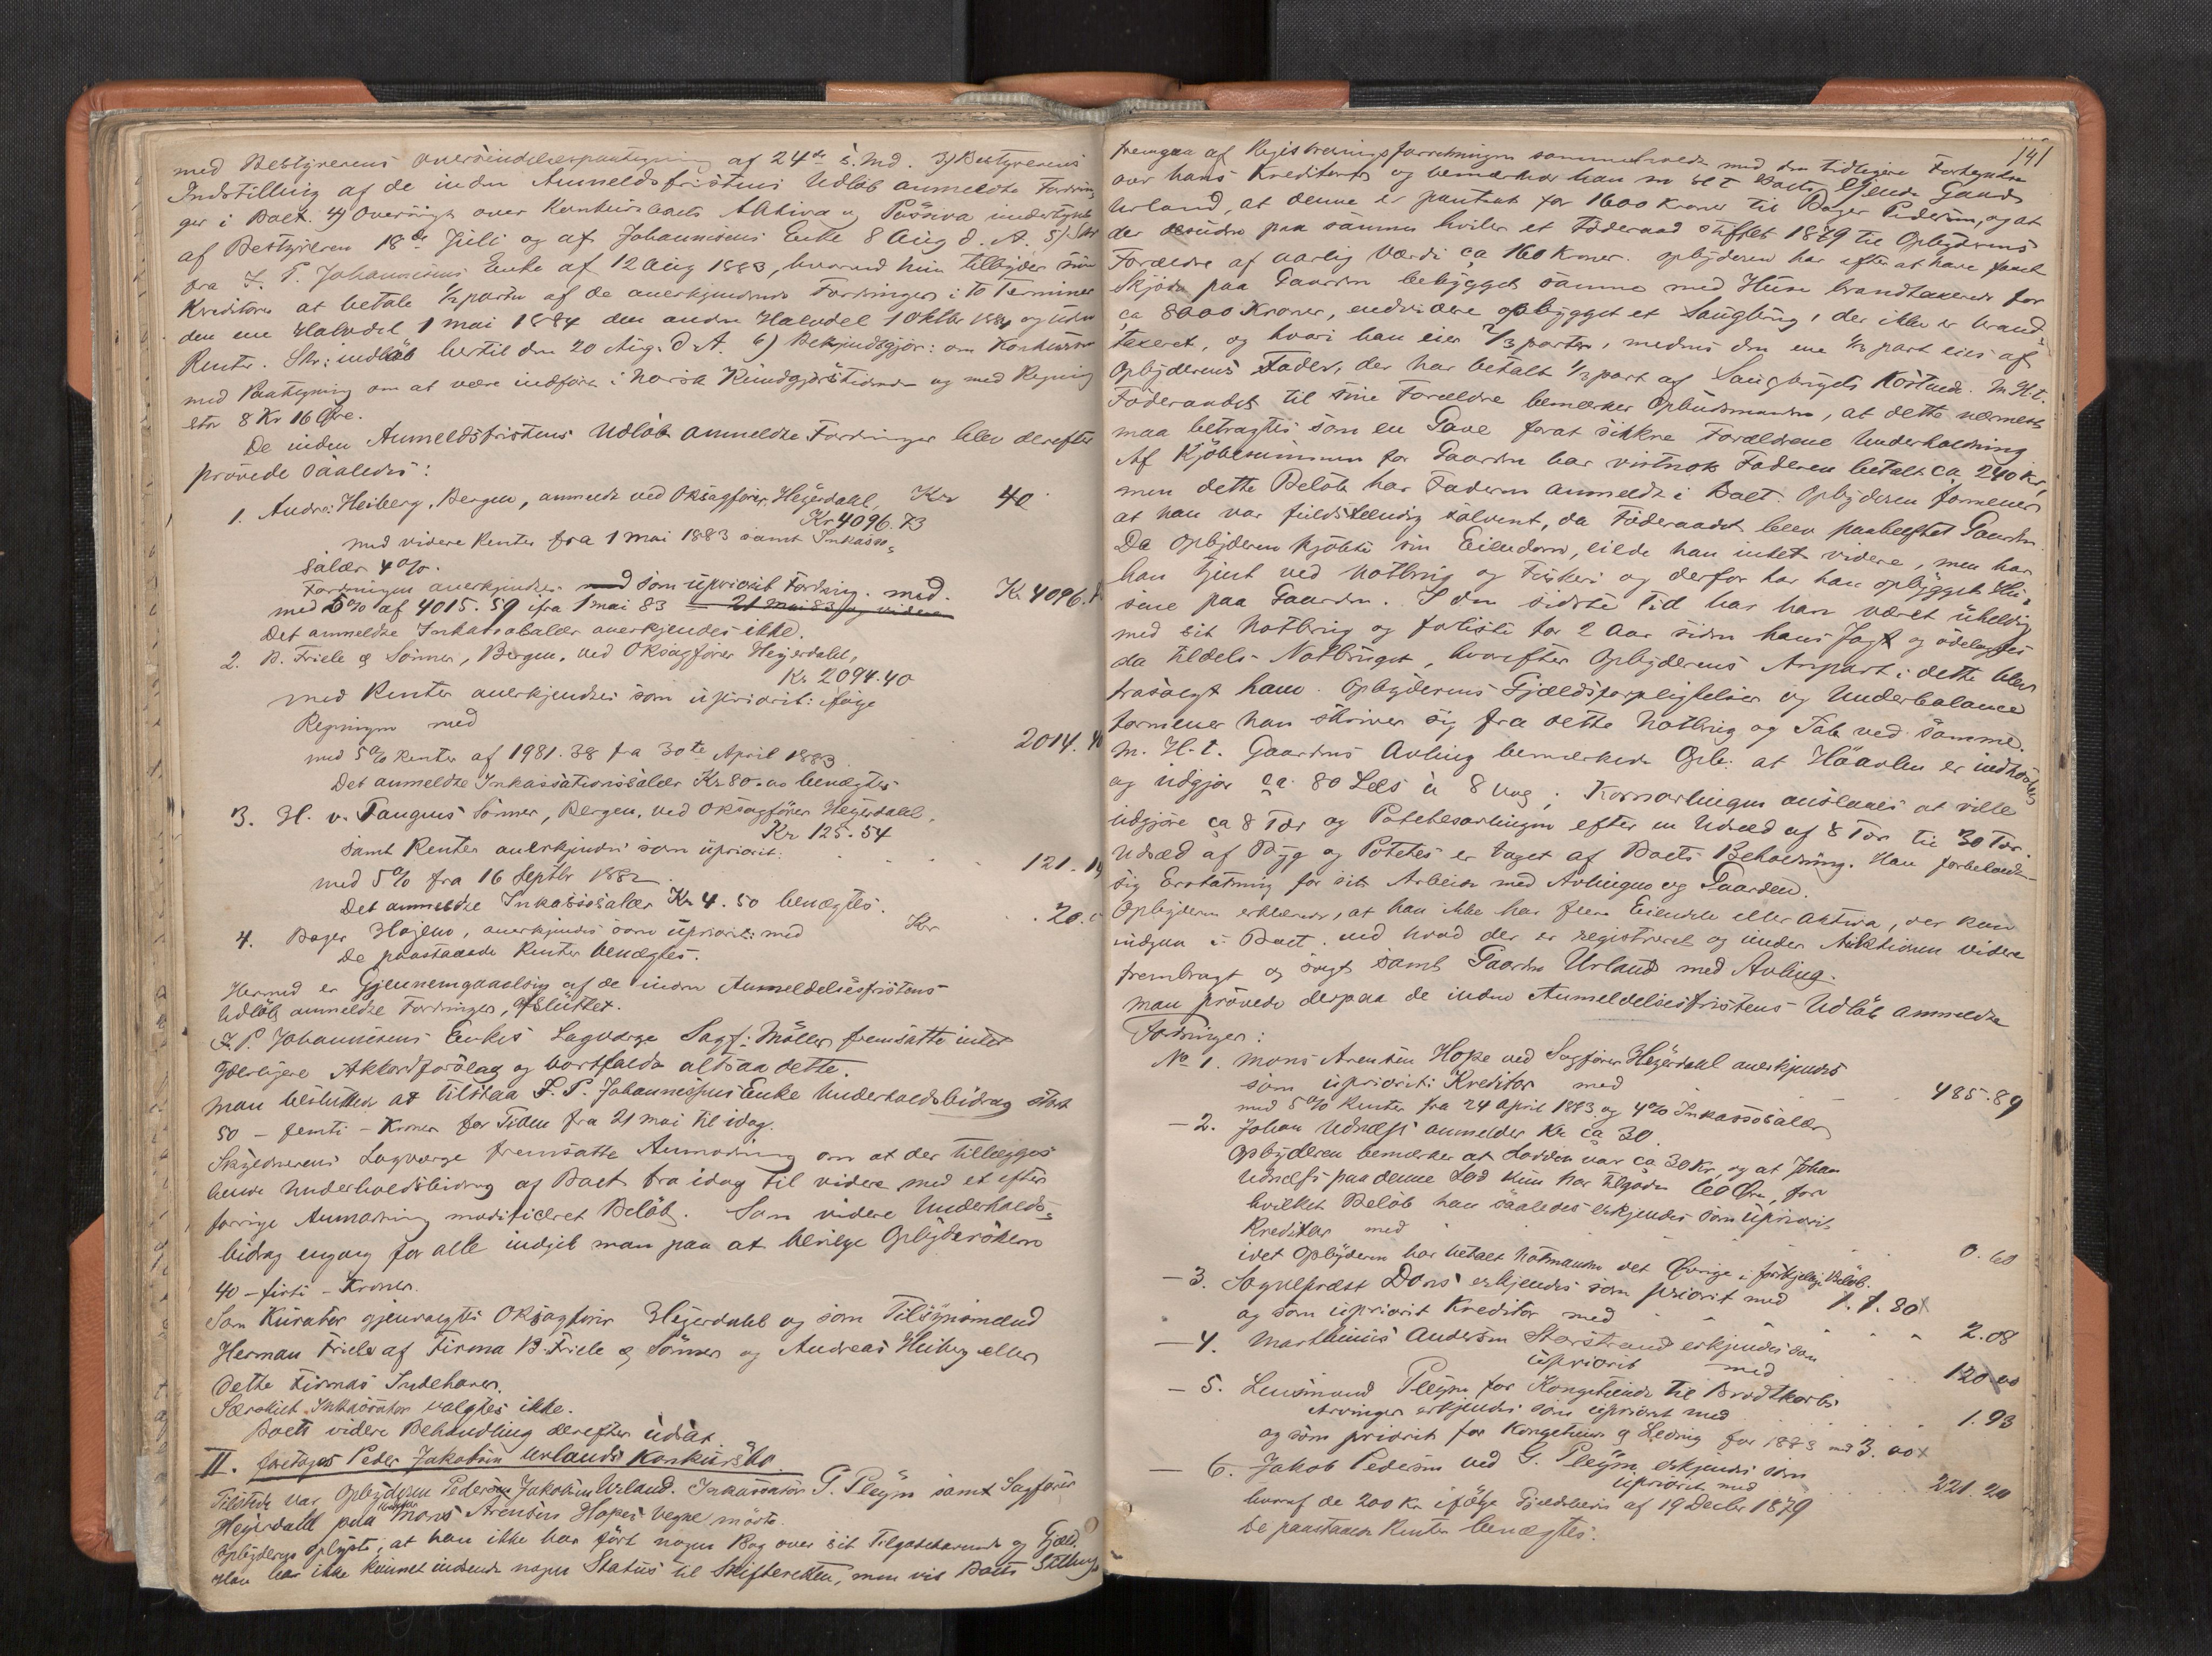 med Bestyrerens Oversendelsespaategning af 24de s. Md. 3) Bestyrerens
Indstilling af de inden Anmeldsfristens Udløb anmeldte Fordrin-
ger i Boet. 4) Oversigt over Konkursboets Aktiva og Passiva
af Bestyreren 18de Juli og af Johannesens Enke 8 Aug d. A. 5)
fra J. P. Johannesens Enke af 12 Aug 1883, hvorved hun tilbyder sine
Kreditorer at betale 1/2 parten af de anerkjendende Fordringer i to Terminer
den ene Halvdel 1 Mai 1884 den anden Halvdel 1 Oktbr 1884 og uden
Renter. Skr: indløb hertil den 20 Aug. d. A. 6) Bekjendtgjør: om Konkursen
med Paategning om at være indført i Norsk Kundgjørelsestidende og med Regning
stor 8 Kr 16 Øre.
De inden Anmeldsfristens Udløb anmeldte Fordringer blev derefter
prøvede saaledes:
1. Andr: Heiberg, Bergen, anmeldt ved OKsagfører Heyerdahl, Kr 40
Kr 4096.73
med videre Renter fra 1 Mai 1883 samt Inkasso-
salær 4%.
Fordringen anerkjendtes som upriorit Fordring med. Kr 4096.
med 5% af 4015.59 ifra 1 Mai 83 21 Mai 83 og videre
Det anmeldte Inkassosalær anerkjendes ikke.
2. B. Friele & Sønner, Bergen, ved OKsagfører Heyerdahl,
Kr. 2094.40
med Renter anerkjendtes som upriorit: ifølge
Regningen med
2014.40
med 5% Renter af 1981.38 fra 30te April 1883.
Det anmeldte Inkassationssalær Kr 80.00 benægtes
3. H. v. Tangens Sønner, Bergen, ved OKsagfører Heyerdahl,
Kr 125.54
samt Renter anerkjendes som upriorit:
121.
med 5% fra 16 Septbr 1882
Det anmeldte Inkassosalær Kr 4.50 benægtes.
4. Bager Hagens, anerkjendes som upriorit: med Kr 20.
De paastaaede Renter benægtes.
Hermed er Gjennemgaaelsen af de inden Anmeldelsesfristens
Udløb anmeldte Fordringer, afsluttet.
J. P. Johannesens Enkes Lagværge Sagf: Møller fremsatte intet
yderligere Akkordforslag og bortfaldt altsaa dette.
Man besluttede at tilstaa J. P. Johannessens Enke Underholdsbidrag stort
50 - femti - Kroner for Tiden fra 21 Mai til idag.
Skyldnerens Lagværge fremsatte Anmodning om at der tillægges
hende Underholdsbidrag af Boet fra idag til videre med et efter
forrige Anmodning modificeret Beløb. Som videre Underholds-
bidrag engang for alle indgik man paa at bevilge Opbydersken
40 - firti - Kroner.
Som Kurator gjenvalgtes OKsagfører Heyerdahl og som Tilsynsmænd
Herman Friele af Firma B. Friele & Sønner og Andreas Heiberg eller
dette Firmas Indehaver.
Særskilt Inkassator valgtes ikke.
Boets videre Behandling derefter udsat
II. foretoges Peder Jakobsen Urlands Konkursbo.
Tilstede var Opbyderen Peder Jakobsen Urland. Inkassator P. Pleym samt Sagfører
Heyerdahl paa Kreditor Mons Arentsen Hopes Vegne mødte.
Opbyderen oplyste, at han ikke har ført nogen Bog over sit Tilgodehavende og Gjæld.
Han har ikke kunnet indsende nogen Status til Skifteretten, men vil Boets Stilling
141
fremgaa af Registreringsforretningen sammenholdt med den tidligere Fortegnelse
over hans Kreditorer og bemærker han m H t Boets Eiende Gaard
Urland, at denne er pantsat for 1600 Kroner til Bager Pedersen, og at
der desuden paa samme hviler et Føderaad stiftet 1879 til Opbyderens
Forældre af aarlig Værdi ca 160 Kroner. Opbyderen har efter at have faaet
Skjøde paa Gaarden bebygget samme med Huse brandtaxerede for
ca 8000 Kroner, endvidere opbygget et Saugbrug, der ikke er brand-
taxeret, og hvori han eier 2/3 parter, medens den ene 1/3 part eies af
Opbyderens Fader, der har betalt 1/3 part af Saugbrugets Kostende. M. H. t.
Føderaadet til sine Forældre bemærker Opbudsmanden, at dette nærmest
maa betragtes som en Gave forat sikkre Forældrene Underholdning
Af Kjøbesummen for Gaarden har vistnok Faderen betalt ca 240 Kr,
men dette Beløb har Faderen anmeldt i Boet. Opbyderen formener
at han var fuldstændig solvent, da Føderaadet blev paaheftet Gaarden
Da Opbyderen kjøbte sin Eiendom, eiede han intet videre, men har
han tjent ved Notbrug og Fiskeri og derfor har han opbygget Hu-
sene paa Gaarden. I den sidste Tid har han været uheldig
med sit Notbrug og forliste for 2 Aar siden hans Jagt og ødelagdes
da tildels Notbruget, hvorefter Opbyderens Anpart i dette blev
frasolgt ham. Opbyderens Gjældsforpligtelser og Underbalance
formener han skriver sig fra dette Notbrug og Tab ved samme.
M. H. t. Gaardens Avling bemærkede Opb: at Høavlen er indhøstet
og udgjør ca 80 Læs à 8 Vog; Kornavlingen ansloges at ville
udgjøre ca 8 Tdr og Potetesavlingen efter en Udsæd af 8 Tdr til 30 Tdr.
Udsæd af Byg og Potetes er taget af Boets Beholdning. Han forbeholdt
sig Erstatning for sit Arbeide med Avlingen og Gaarden.
Opbyderen erklærede, at han ikke har flere Eiendele eller Aktiva, der kan
indgaa i Boet, end hvad der er registreret og under Auktionen videre
frembragt og solgt samt Gaarden Urland med Avling.
Man prøvede derpaa de inden Anmeldelsesfristens Udløb anmeldte
Fordringer:
No 1. Mons Arentsen Hope ved Sagfører Heyerdahl anerkjendes
som upriorit: Kreditor med 485.89
med 5% Renter fra 24 April 1883 og 4% Inkassosalær
- 2. Johan Udnæss anmelder Kr ca 30.
Opbyderen bemærker at Lodden var ca 30 Kr, og at Johan
Udnæss paa denne Lod kun har tilgode 60 Øre, for
hvilket Beløb han saaledes erkjendes som upriorit
Kreditor med 0.60
idet Opbyderen har betalt Notmanden det Øvrige i forskjellige Beløb.
- 3. Sogneprest Dons erkjendes som priorit med 1.80 x
og som upriorit Kreditor med 2.08
- 4. Marthinus Andersen Storstrand erkjendes som
upriorit med 120.00
- 5. Lensmand Pleym for Kongetiende til Brodtkorbs
Arvinger erkjendes som upriorit med 1.93
og som priorit for Kongetiende & Ledning for 1883 med 3.00 x
- 6. Jakob Pedersen ved G. Pleym erkjendes som
upriorit med 221.20
hvoraf de 200 Kr ifølge Gjældsbevis af 19 Decbr 1879
De paastaaede Renter benægtes.